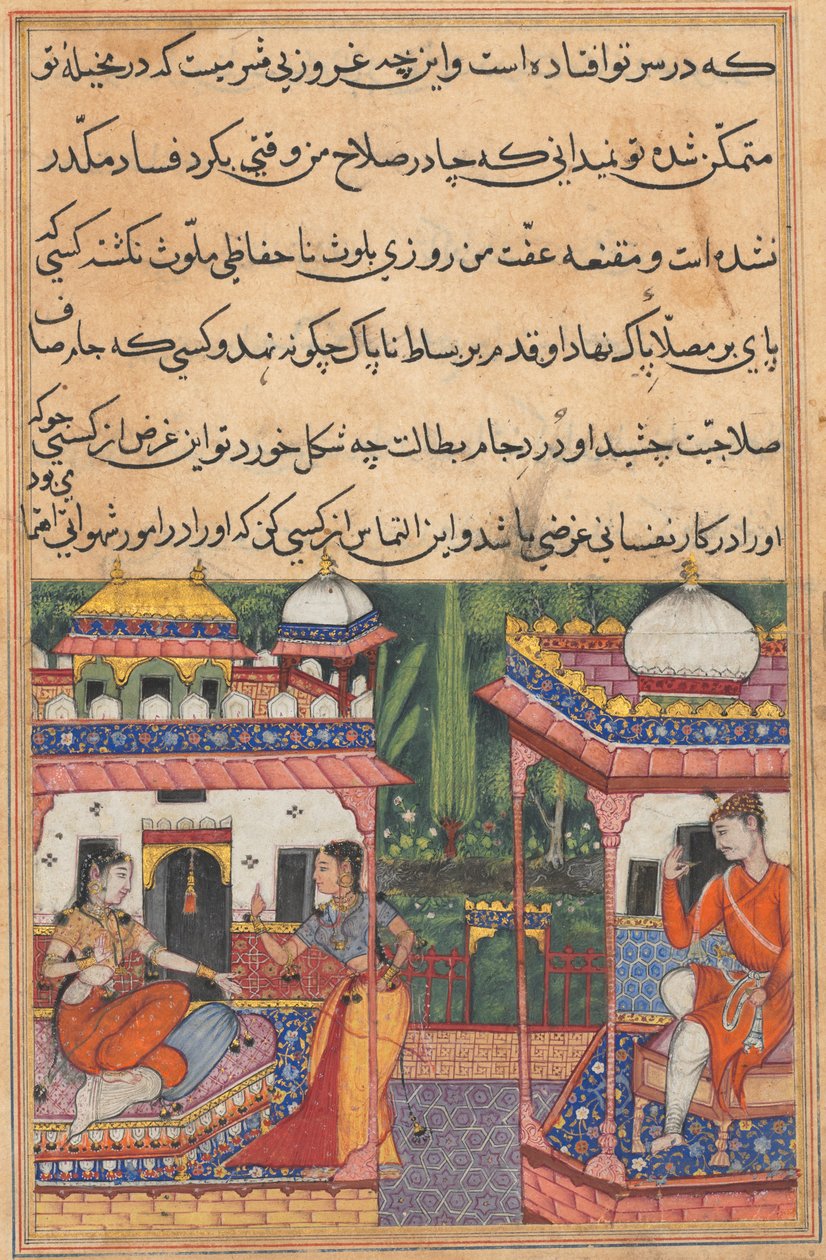 که در سر تو افتاده است و این چه غروزبی قشرمیست که در مخیلهٔ تو
متمکّن شده تو نمیدانی که چادر صلاح من وقتی بکرد فساد مکدّر
نشده است و مقنعه عفّت من روزی بلوث ناحفاظی ملوّث نکشته کسی که
پای بر مصلّا پاک نهاد او قدم بر بساط ناپاک چکونه نهد و کسی که جام صاف
صلاحیّت چشید او دُردِ جام بطالت چه شکل خورد تو این غرض از کسی جو که
اورا در کار نفسانی غرضی باشد و این التماس از کسی کن که اورا در امور شهوانی اهتما می بود